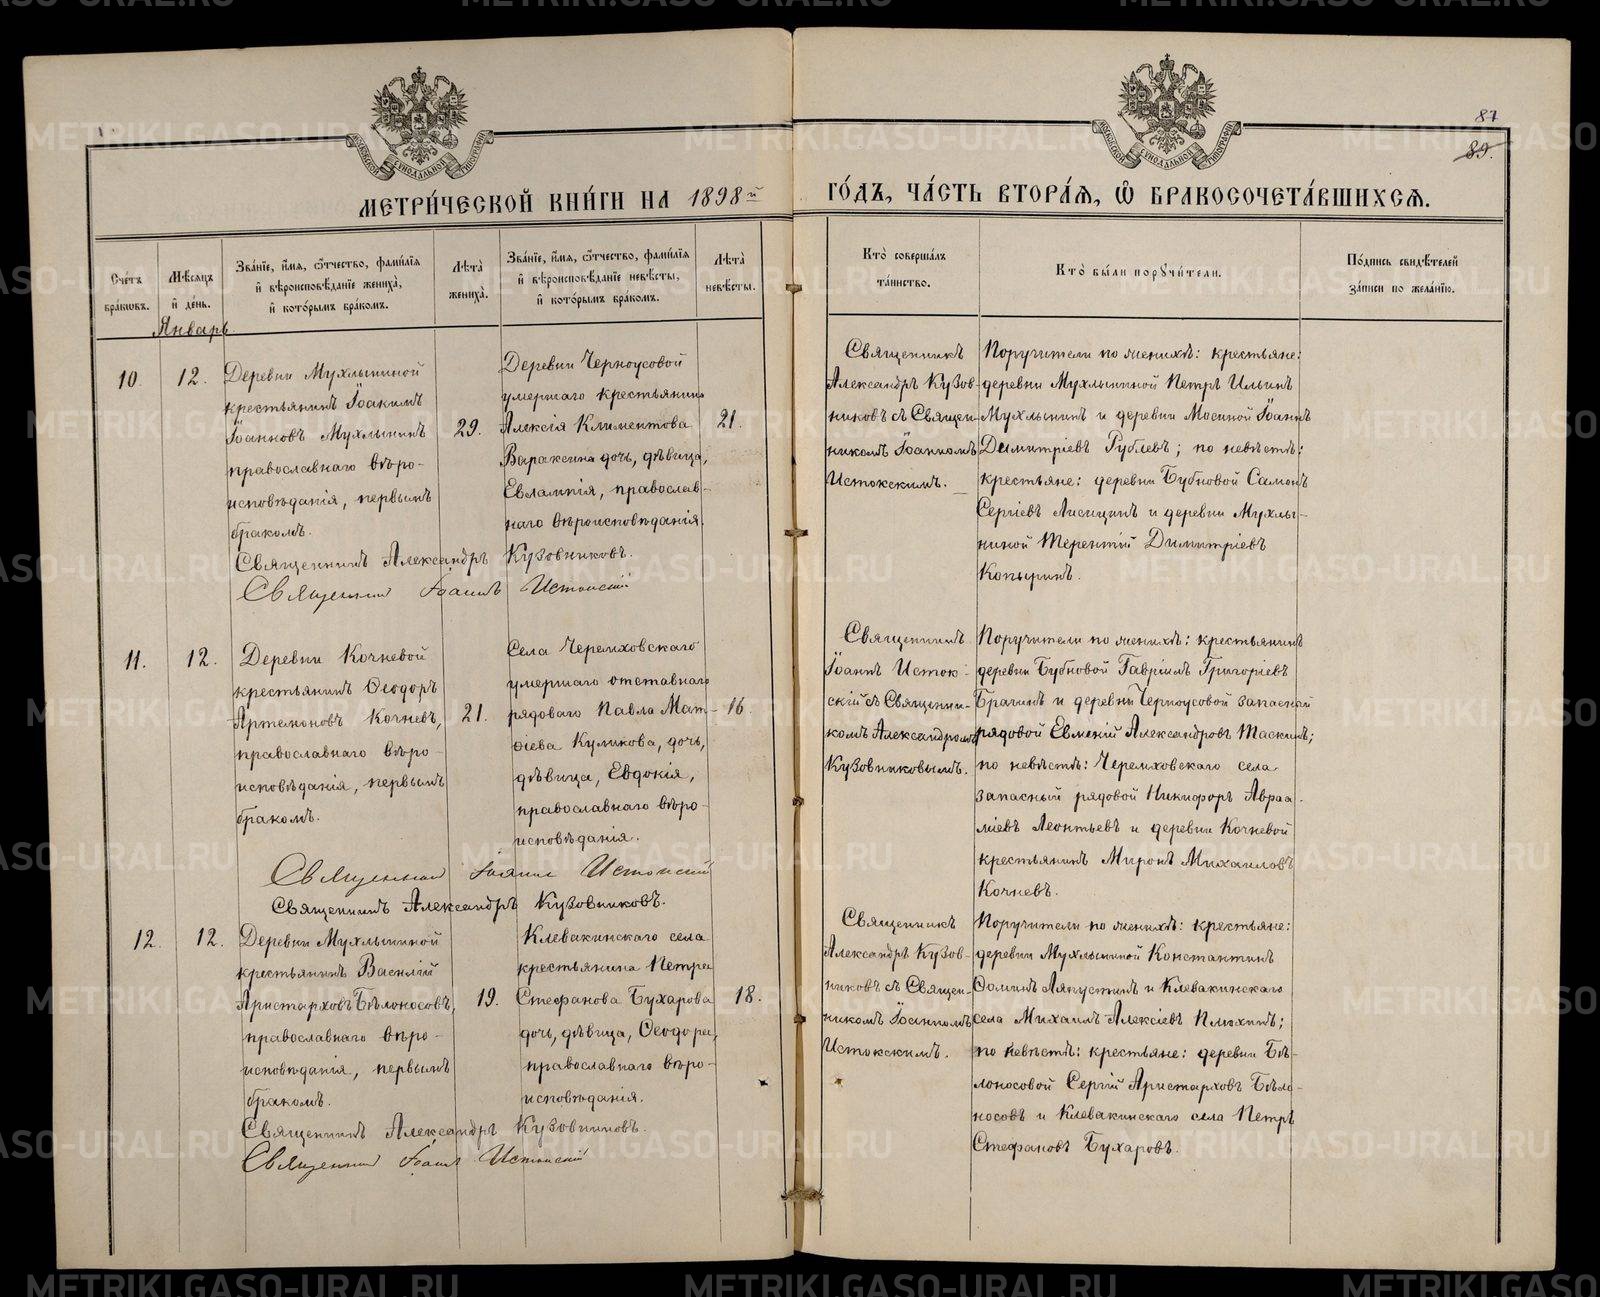 87
89.
МЕТРИ́ЧЕСКОЙ КНИ́ГИ НА 1898й ГО́ДЪ, ЧА́СТЬ ВТОРА́Ѧ, Ѡ҆ БРАКОСОЧЕТА́ВШИХСѦ.
Сче́тъ бра́ковъ.
Мѣ́сяцъ и҆ де́нь.
Зва́нїе, и҆́мя, ѻ҆́тчество, фами́лїя
и҆ вѣроисповѣ́данїе жениха̀,
и҆ кото́рымъ бра́комъ.
Лѣта̀
жениха̀.
Зва́нїе, и҆́мя, ѻ҆́тчество, фами́лїя
и҆ вѣроисповѣ́данїе невѣ́сты,
и҆ кото́рымъ бра́комъ.
Лѣта̀
невѣ́сты.
Кто̀ соверша́лъ
та́инство.
Кто̀ бы́ли поручи́тели.
По́дпись свидѣ́телей
за́писи по жела́нїю.
Январь
10.
12.
Деревни Мухлыниной
крестьянинъ Іоакимъ
Іоанновъ Мухлынинъ
православнаго вѣро-
исповѣданія, первымъ
бракомъ.
29.
Деревни Черноусовой
умершаго крестьянина
Алексія Климентова
Вараксина дочь, дѣвица,
Евлампія, православ-
наго вѣроисповѣданія.
21.
Священникъ
Александръ Кузов-
никовъ съ Священ-
никомъ Іоанномъ
Истокскимъ.
Поручители по женихѣ: крестьяне:
деревни Мухлыниной Петръ Ильинъ
Мухлынинъ и деревни Мосиной Іоаннъ
Димитріевъ Рублевъ; по невѣстѣ:
крестьяне: деревни Бубновой Самонъ
Сергіевъ Лисицинъ и деревни Мухлы-
ниной Терентій Димитріевъ
Копыринъ.
Священникъ Александръ Кузовниковъ.
Священникъ Іоаннъ Истокскій
11.
12.
Деревни Кочневой
крестьянинъ Ѳеодоръ
Артемоновъ Кочневъ,
православнаго вѣро-
исповѣданія, первымъ
бракомъ.
21.
Села Черемховскаго
умершаго отставнаго
рядоваго Павла Мат-
ѳіева Куликова, дочь,
дѣвица, Евдокія,
православнаго вѣро-
исповѣданія.
16.
Священникъ
Іоаннъ Исток-
скій съ Священни-
комъ Александромъ
Кузовниковымъ.
Поручители по женихѣ: крестьянинъ
деревни Бубновой Гавріилъ Григоріевъ
Брагинъ и деревни Черноусовой запасный
рядовой Евмений Александровъ Таскинъ;
по невѣстѣ: Черемховскаго села
запасный рядовой Никифоръ Авраа-
міевъ Леонтьевъ и деревни Кочневой
крестьянинъ Миронъ Михаиловъ
Кочневъ.
Священникъ Іоаннъ Истокскій
Священникъ Александръ Кузовниковъ.
12.
12.
Деревни Мухлыниной
крестьянинъ Василій
Аристарховъ Бѣлоносовъ,
православнаго вѣро-
исповѣданія, первымъ
бракомъ.
19.
Клевакинскаго села
крестьянина Петра
Стефанова Бухарова
дочь, дѣвица, Ѳеодора,
православнаго вѣро-
исповѣданія.
18.
Священникъ
Александръ Кузов-
никовъ съ Священ-
никомъ Іоанномъ
Истокскимъ.
Поручители по женихѣ: крестьяне:
деревни Мухлыниной Константинъ
Ѳоминъ Ляпустинъ и Клевакинскаго
села Михаилъ Алексіевъ Плюхинъ;
по невѣстѣ: крестьяне: деревни Бѣ-
лоносовой Сергій Аристарховъ Бѣло-
носовъ и Клевакинскаго села Петръ
Стефановъ Бухаровъ.
Священникъ Александръ Кузовниковъ.
Священникъ Іоаннъ Истокскій
METRIKI.GASO-URAL.RU